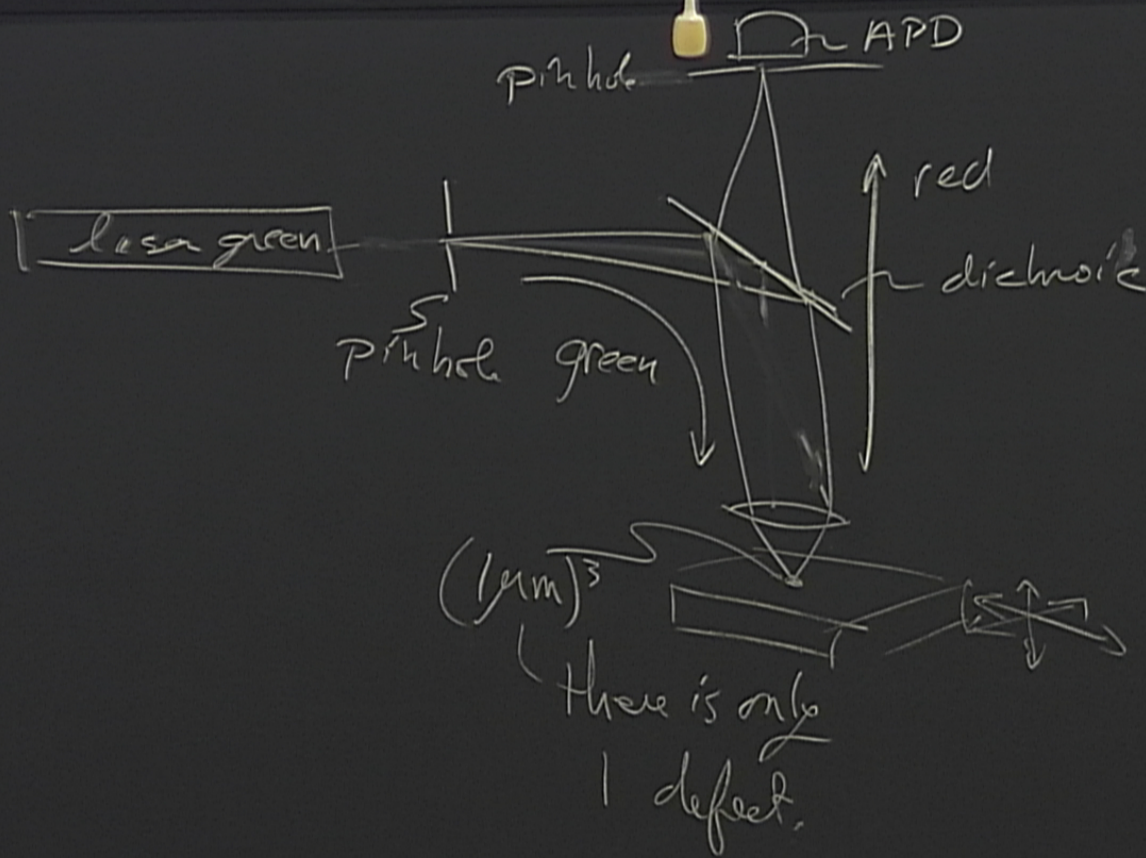 APD
pinhole
red
laser green
dichroic
pinhole green
(1μm)³
there is only
1 defect.